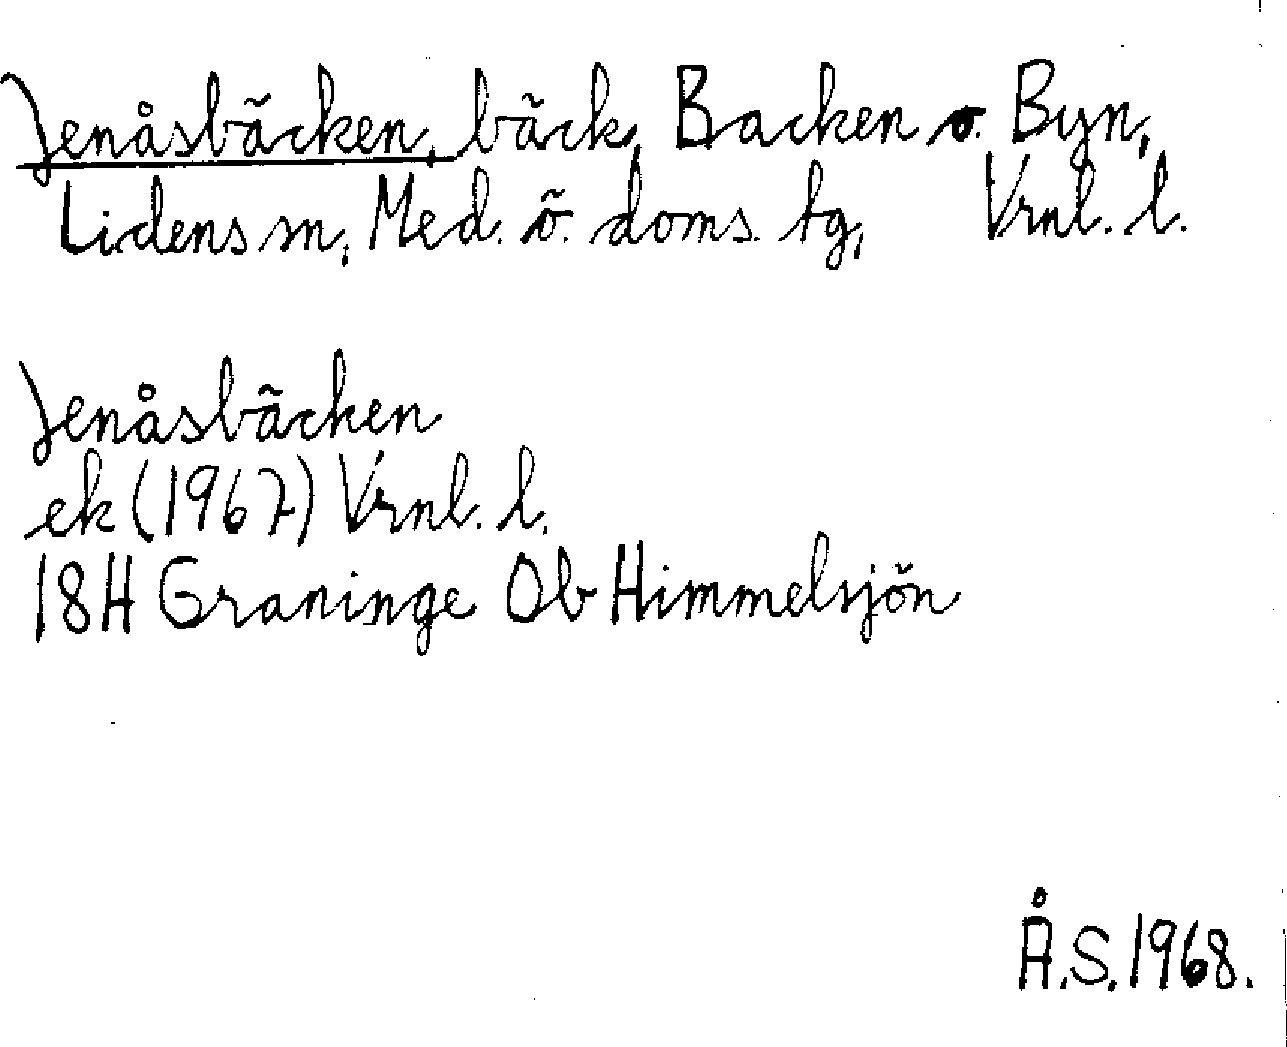 Jenåsbäcken, bäck, Backen o. Byn,
Lidens sn, Med. ö. doms. tg, Vrnl. l.
Jenåsbäcken
ek (1967) Vrnl. l.
18H Graninge Ob Himmelsjön
Å.S. 1968.